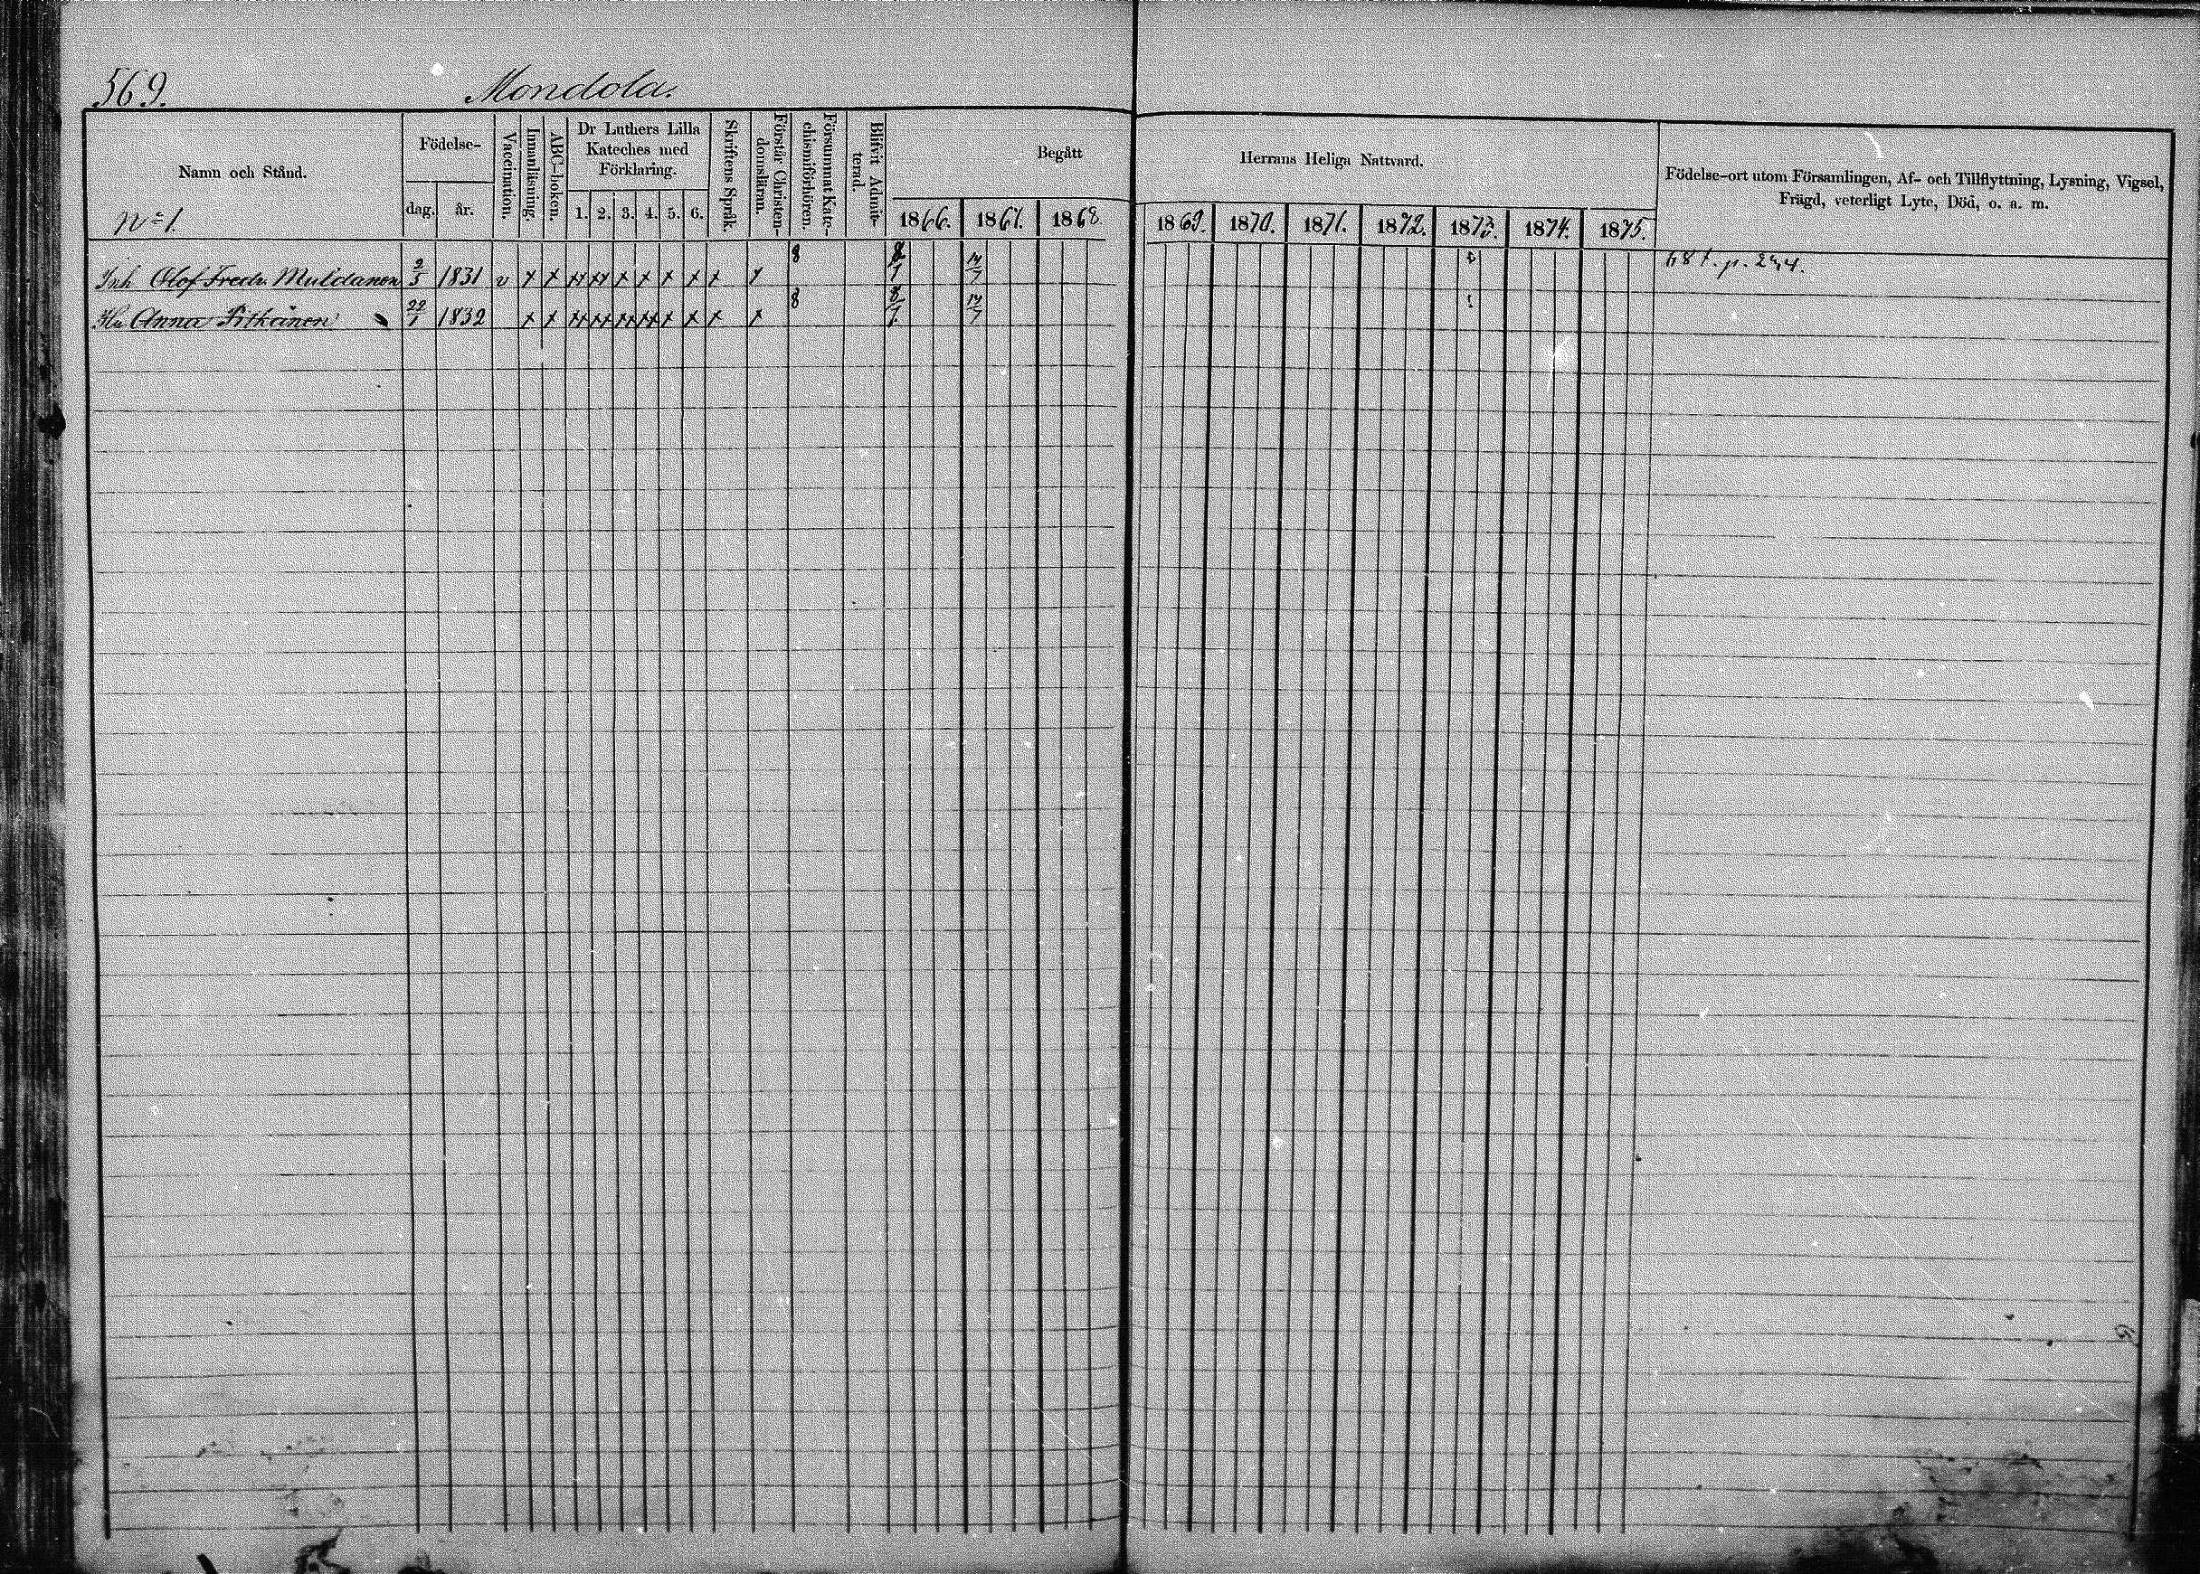 569. Mondola.
Namn och Stånd.
Födelse-
dag. år.
Vaccination.
Innanläsning.
ABC-boken.
Dr Luthers Lilla
Kateches med
Förklaring.
1. 2. 3. 4. 5. 6.
Skriftens Språk.
Förstår Christen-
domsläran.
Försummat Kate-
chismiförhören.
Blifvit Admit-
terad.
Begått Herrans Heliga Nattvard.
1866. 1867. 1868. 1869. 1870. 1871. 1872. 1873. 1874. 1875.
Födelse-ort utom Församlingen, Af- och Tillflyttning, Lysning, Vigsel,
Frägd, veterligt Lyte, Död, o. a. m.
No 1.
Inh Olof Fredr. Muldanen 2/5 1831 v x x xx xx x x x x x x 8 8/7 14/7
Hu Anna Pitkänen 22/1 1832 x x xx xx xx xx x x x x 8 8/7 14/7